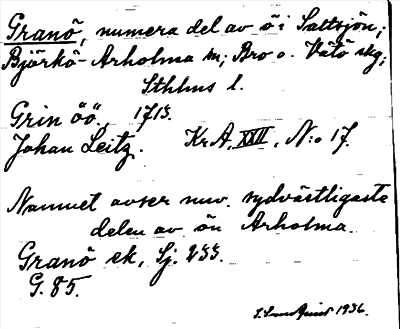 Granö, numera del av ö i Saltsjön;
Björkö-Arholma sn; Bro o. Vätö skg;
Sthlms l.
Grin öö, 1715.
Johan Leitz. Kr A, XXII, N:o 17.
Namnet avser nuv. sydvästligaste
delen av ön Arholma.
Granö ek, Sj. 255.
G. 85.
1936.